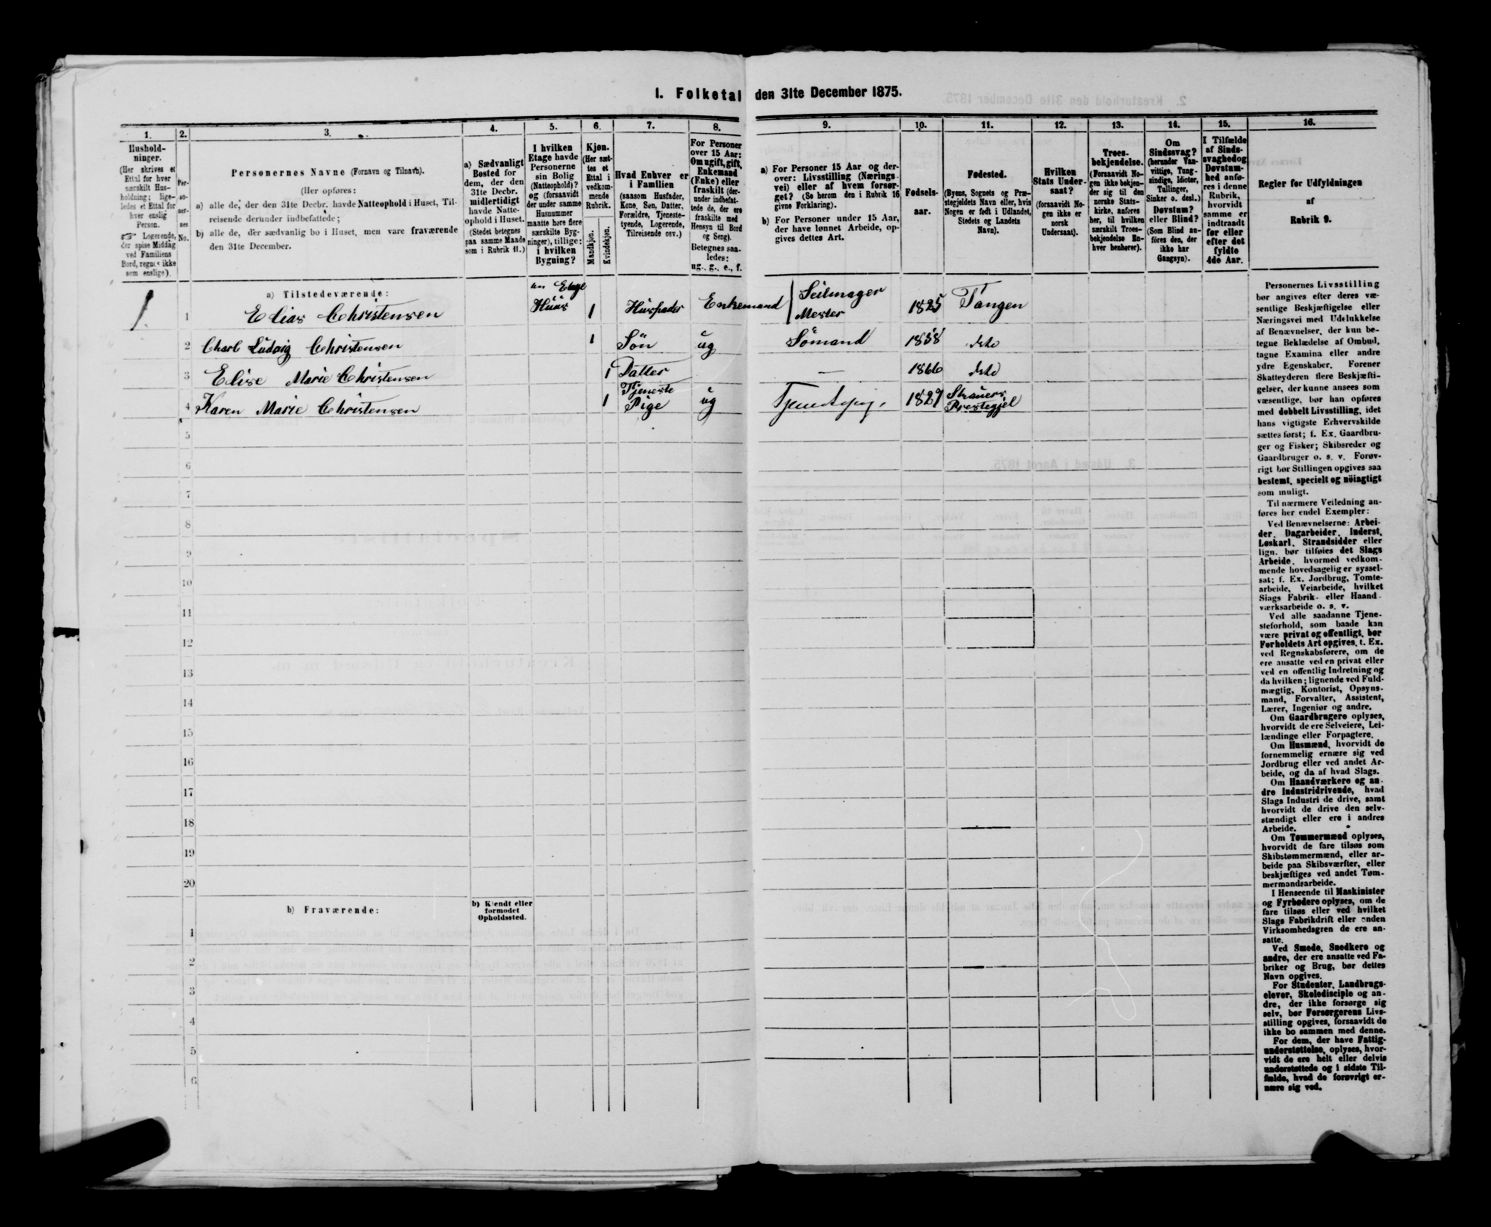 I. Folketal den 31te December 1875.
1. 2. 3. 4. 5. 6. 7. 8. 9. 10. 11. 12. 13. 14. 15. 16.
Hushold-
ninger.
(Her skrives et
Ettal for hver
særskilt Hus-
holdning; lige-
ledes et Ettal for
hver enslig
Person.
Logerende,
der spise Middag
ved Familiens
Bord, regnes ikke
som enslige).
Per-
so-
ner-
nes
No.
Personernes Navne (Fornavn og Tilnavn).
(Her opføres:
a) alle de, der den 31te Decbr. havde Natteophold i Huset, Til-
reisende derunder indbefattede;
b) alle de, der sædvanlig bo i Huset, men vare fraværende
den 31te December.
a) Sædvanligt
Bosted for
dem, der den
31te Decbr.
midlertidigt
havde Natte-
ophold i Huset.
(Stedet betegnes
paa samme Maade
som i Rubrik 11.)
I hvilken
Etage havde
Personerne
sin Bolig
(Natteophold)?
og (forsaavidt
der under samme
Husnummer
maatte høre flere
særskilte Byg-
ninger), tillige:
i hvilken
Bygning?
Kjøn.
(Her sæt-
tes et
Ettal i
vedkom-
mende
Rubrik.
Mandkjøn.
Kvindekjøn.
Hvad Enhver er
i Familien
(saasom Husfader,
Kone, Søn, Datter,
Forældre, Tjeneste-
tyende, Logerende,
Tilreisende osv.)
For Personer
over 15 Aar:
Om ugift, gift,
Enkemand
(Enke) eller
fraskilt (der-
under indbefat-
tede de, der ere
fraskilte med
Hensyn til Bord
og Seng).
Betegnes saa-
ledes:
ug., g., e., f.
a) For Personer 15 Aar og der-
over: Livsstilling (Nærings-
vei) eller af hvem forsør-
get? (Se herom den i Rubrik 16
givne Forklaring).
b) For Personer under 15 Aar,
der have lønnet Arbeide, op-
gives dettes Art.
Fødsels-
aar.
Fødested.
(Byens, Sognets og Præ-
stegjeldets Navn eller, hvis
Nogen er født i Udlandet,
Stedets og Landets
Navn).
Hvilken
Stats Under-
saat?
(forsaavidt No-
gen ikke er
norsk
Undersaat).
Troes-
bekjendelse.
(Forsaavidt No-
gen ikke bekjen-
der sig til den
norske Stats-
kirke, anføres
her, til hvilken
særskilt Troes-
bekjendelse En-
hver henhører).
Om
Sindssvag?
(herunder Van-
vittige, Tung-
sindige, Idioter,
Tullinger,
Sinker o. desl.)
Døvstum?
eller Blind?
(Som Blind an-
føres den, der
ikke har
Gangsyn).
I Tilfælde
af Sinds-
svaghed og
Døvstum-
hed anfø-
res i denne
Rubrik,
hvorvidt
samme er
indtraadt
før eller
efter det
fyldte
4de Aar.
Regler for Udfyldningen
af
Rubrik 9.
a) Tilstedeværende:
1. 1 Elias Christensen Etage Huus 1 Husfader Enkemand Seilmager Mester 1825 Tangen
2 Charl Ludvig Christensen 1 Søn ug Sömand 1858 dito
3 Elise Marie Christensen 1 Datter — 1866 dito
4 Karen Marie Christensen 1 Tjeneste Pige ug 1829 Prestegjel
5
6
7
8
9
10
11
12
13
14
15
16
17
18
19
20
b) Fraværende:
b) Kjendt eller
formodet
Opholdssted.
1
2
3
4
5
6
Personernes Livsstilling
bør angives efter deres væ-
sentlige Beskjæftigelse eller
Næringsvei med Udelukkelse
af Benævnelser, der kun be-
tegne Beklædelse af Ombud,
tagne Examina eller andre
ydre Egenskaber. Forener
Skatteyderen flere Beskjæfti-
gelser, der kunne ansees som
væsentlige, bør han opføres
med dobbelt Livsstilling, idet
hans vigtigste Erhvervskilde
sættes først; f. Ex. Gaardbru-
ger og Fisker; Skibsreder og
Gaardbruger o. s. v. Forøv-
rigt bør Stillingen opgives saa
bestemt, specielt og nöiagtigt
som muligt.
Til nærmere Veiledning an-
føres her endel Exempler:
Ved Benævnelserne: Arbei-
der, Dagarbeider, Inderst,
Løskarl, Strandsidder eller
lign. bør tilføies det Slags
Arbeide, hvormed vedkom-
mende hovedsagelig er syssel-
sat; f. Ex. Jordbrug, Tomte-
arbeide, Veiarbeide, hvilket
Slags Fabrik- eller Haand-
værksarbeide o. s. v.
Ved alle saadanne Tjene-
steforhold, som baade kan
være privat og offentligt, bør
Forholdets Art opgives, t. Ex.
ved Regnskabsførere, om de
ere ansatte ved en privat eller
ved en offentlig Indretning og
da hvilken; lignende ved Fuld-
mægtig, Kontorist, Opsyns-
mand, Forvalter, Assistent,
Lærer, Ingeniør og andre.
Om Gaardbrugere oplyses,
hvorvidt de ere Selveiere, Lei-
lændinge eller Forpagtere.
Om Husmænd, hvorvidt de
fornemmelig ernære sig ved
Jordbrug eller ved andet Ar-
beide, og da af hvad Slags.
Om Haandværkere og an-
dre Industridrivende, hvad
Slags Industri de drive, samt
hvorvidt de drive den selv-
stændigt eller ere i andres
Arbeide.
Om Tømmermænd oplyses,
hvorvidt de fare tilsøs som
Skibstømmermænd, eller ar-
beide paa Skibsværfter, eller
beskjæftiges ved andet Tøm-
mermandsarbeide.
I Henseende til Maskinister
og Fyrbødere oplyses, om de
fare tilsøs eller ved hvilket
Slags Fabrikdrift eller anden
Virksomhedsgren de ere an-
satte.
Ved Smede, Snedkere og
andre, der ere ansatte ved Fa-
briker og Brug, bør dettes
Navn opgives.
For Studenter, Landbrugs-
elever, Skoledisciple og an-
dre, der ikke forsørge sig
selv, bør Forsørgerens Livs-
stilling opgives, forsaavidt de
ikke bo sammen med denne.
For dem, der have Fattig-
understøttelse, oplyses, hvor-
vidt de ere helt eller delvis
understøttede og i sidste Til-
fælde, hvad de forøvrigt er-
nære sig ved.